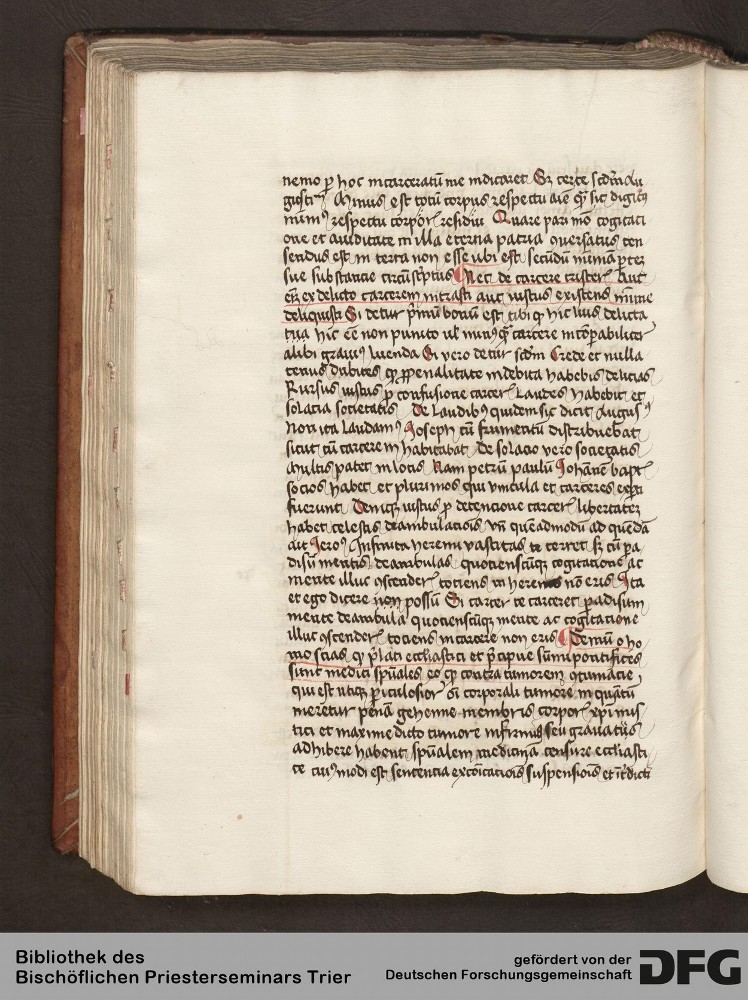 nemo ꝑ hoc incarceratū me indicaret Sꝫ certe scd̄m Au
gustī Minus est totū corpus respectu aīe qͣꝫ sic digitꝰ
minimꝰ respectu corporꝭ residui Quare pari mō cogitati
one et auiditate in illa eterna patria ꝯuersatus cen
sendus est in terra non esse ubi est secūdū minimā ꝑtem
sue substantie circūscriptus Nec de carcere tristerꝭ Aut
em̄ ex delicto carcerem intrasti aut iustus existens
deliquisti Si detur pͥmū bonū est tibi ꝙ hic luis delicta
tua hic eē non punito ul̓ carcere incōꝑabiliter
alibi grauiꝰ luenda Si vero detur scd̄m Crede et nulla
tenus dubites ꝙ ꝓ penalitate indebita habebis delicias
Rursus iustus ꝓ confusione carcerꝭ laudes habebit et
solacia societatis De laudibꝰ quidem sic dicit Augusꝰ
Non ita laudamꝰ Joseph cū frumentū distribuebat
sicut cū carcerem inhabitabat De solacio vero societatis
multis patet in locis Nam petrū paulū Johānē bapt
socios habet et plurimos qui vincula et carceres exꝑti
fuerunt Deniqꝫ iustus ꝓ detencione carcerꝭ libertatem
habet celestis deambulacōis Vn̄ quēadmodū ad quendā
ait Jeroꝰ Infinita heremi vastitas te terret sꝫ tū pa
disū mentis deambulas quotienscūqꝫ cogitatione ac
mente illuc ꝯscenderꝭ totiens in heremo nō eris Ita
et ego dicere non possū Si carcer te carceret ꝑadisum
mente deambula quotienscūqꝫ mente ac cogitatione
illuc ꝯscenderꝭ totiens in carcere non eris Tercīū o ho
mo scias ꝙ p̄lati ecclīastici et p̄cipue sūmi pontifices
sunt medici spūales eo ꝙ contra tumorem ꝯtumacie
qui est utiqꝫ ꝑiculosior oī corporali tumore in quātū
meretur penā gehenne membris corporꝭ xp̄i mis
tici et maxime dicto tumore infirmis seu grauatis
adhibere habent spūalem medicinā censure ecclīasti
ce cuiꝰmodi est sentencia excōicatiōis suspensiōis et īt̄dicti
Bibliothek des
Bischöflichen Priesterseminars Trier
gefördert von der
Deutschen Forschungsgemeinschaft
DFG